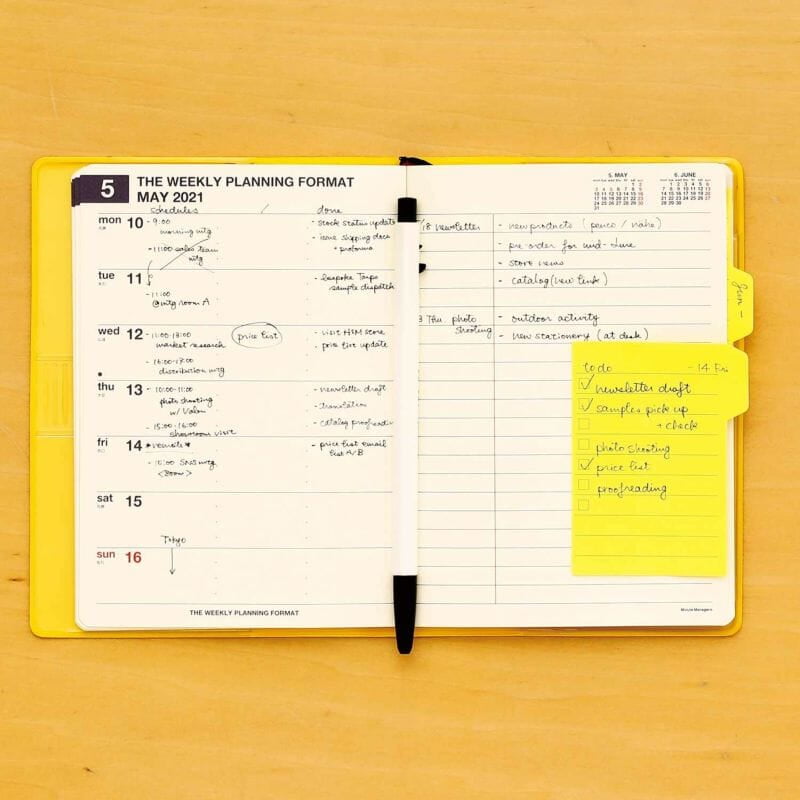 5
THE WEEKLY PLANNING FORMAT
MAY 2021
schedules / done
mon 10
- 9:00
morning mtg
- 11:00 sales team
mtg
- stock status update
- issue shipping docs
+ proforma
tue 11
- 11:00
@mtg room A
- bespoke
sample dispatch
wed 12
- 11:00-13:00
market research
price list
- 16:00-17:00
distribution mtg
- visit H&M store
- price list update
thu 13
- 10:00-11:00
photo shooting
w/
- 15:00-16:00
showroom visit
- newsletter draft
- translation
- catalog proofreading
fri 14
*remote*
- 10:00 SNS mtg
- price list email
list A/B
sat 15
sun 16
Tokyo
THE WEEKLY PLANNING FORMAT
5. MAY
6. JUNE
/18 newsletter
- new products (penco / nahe)
- pre-order for mid-June
- store news
- catalog (new link)
Thu photo
shooting
- outdoor activity
- new stationery (at desk)
Jun -
to do - 14 Fri
newsletter draft
samples pick up
+ check
photo shooting
price list
proofreading